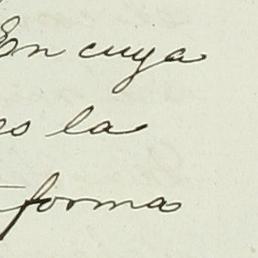 En cuya
es la
forma